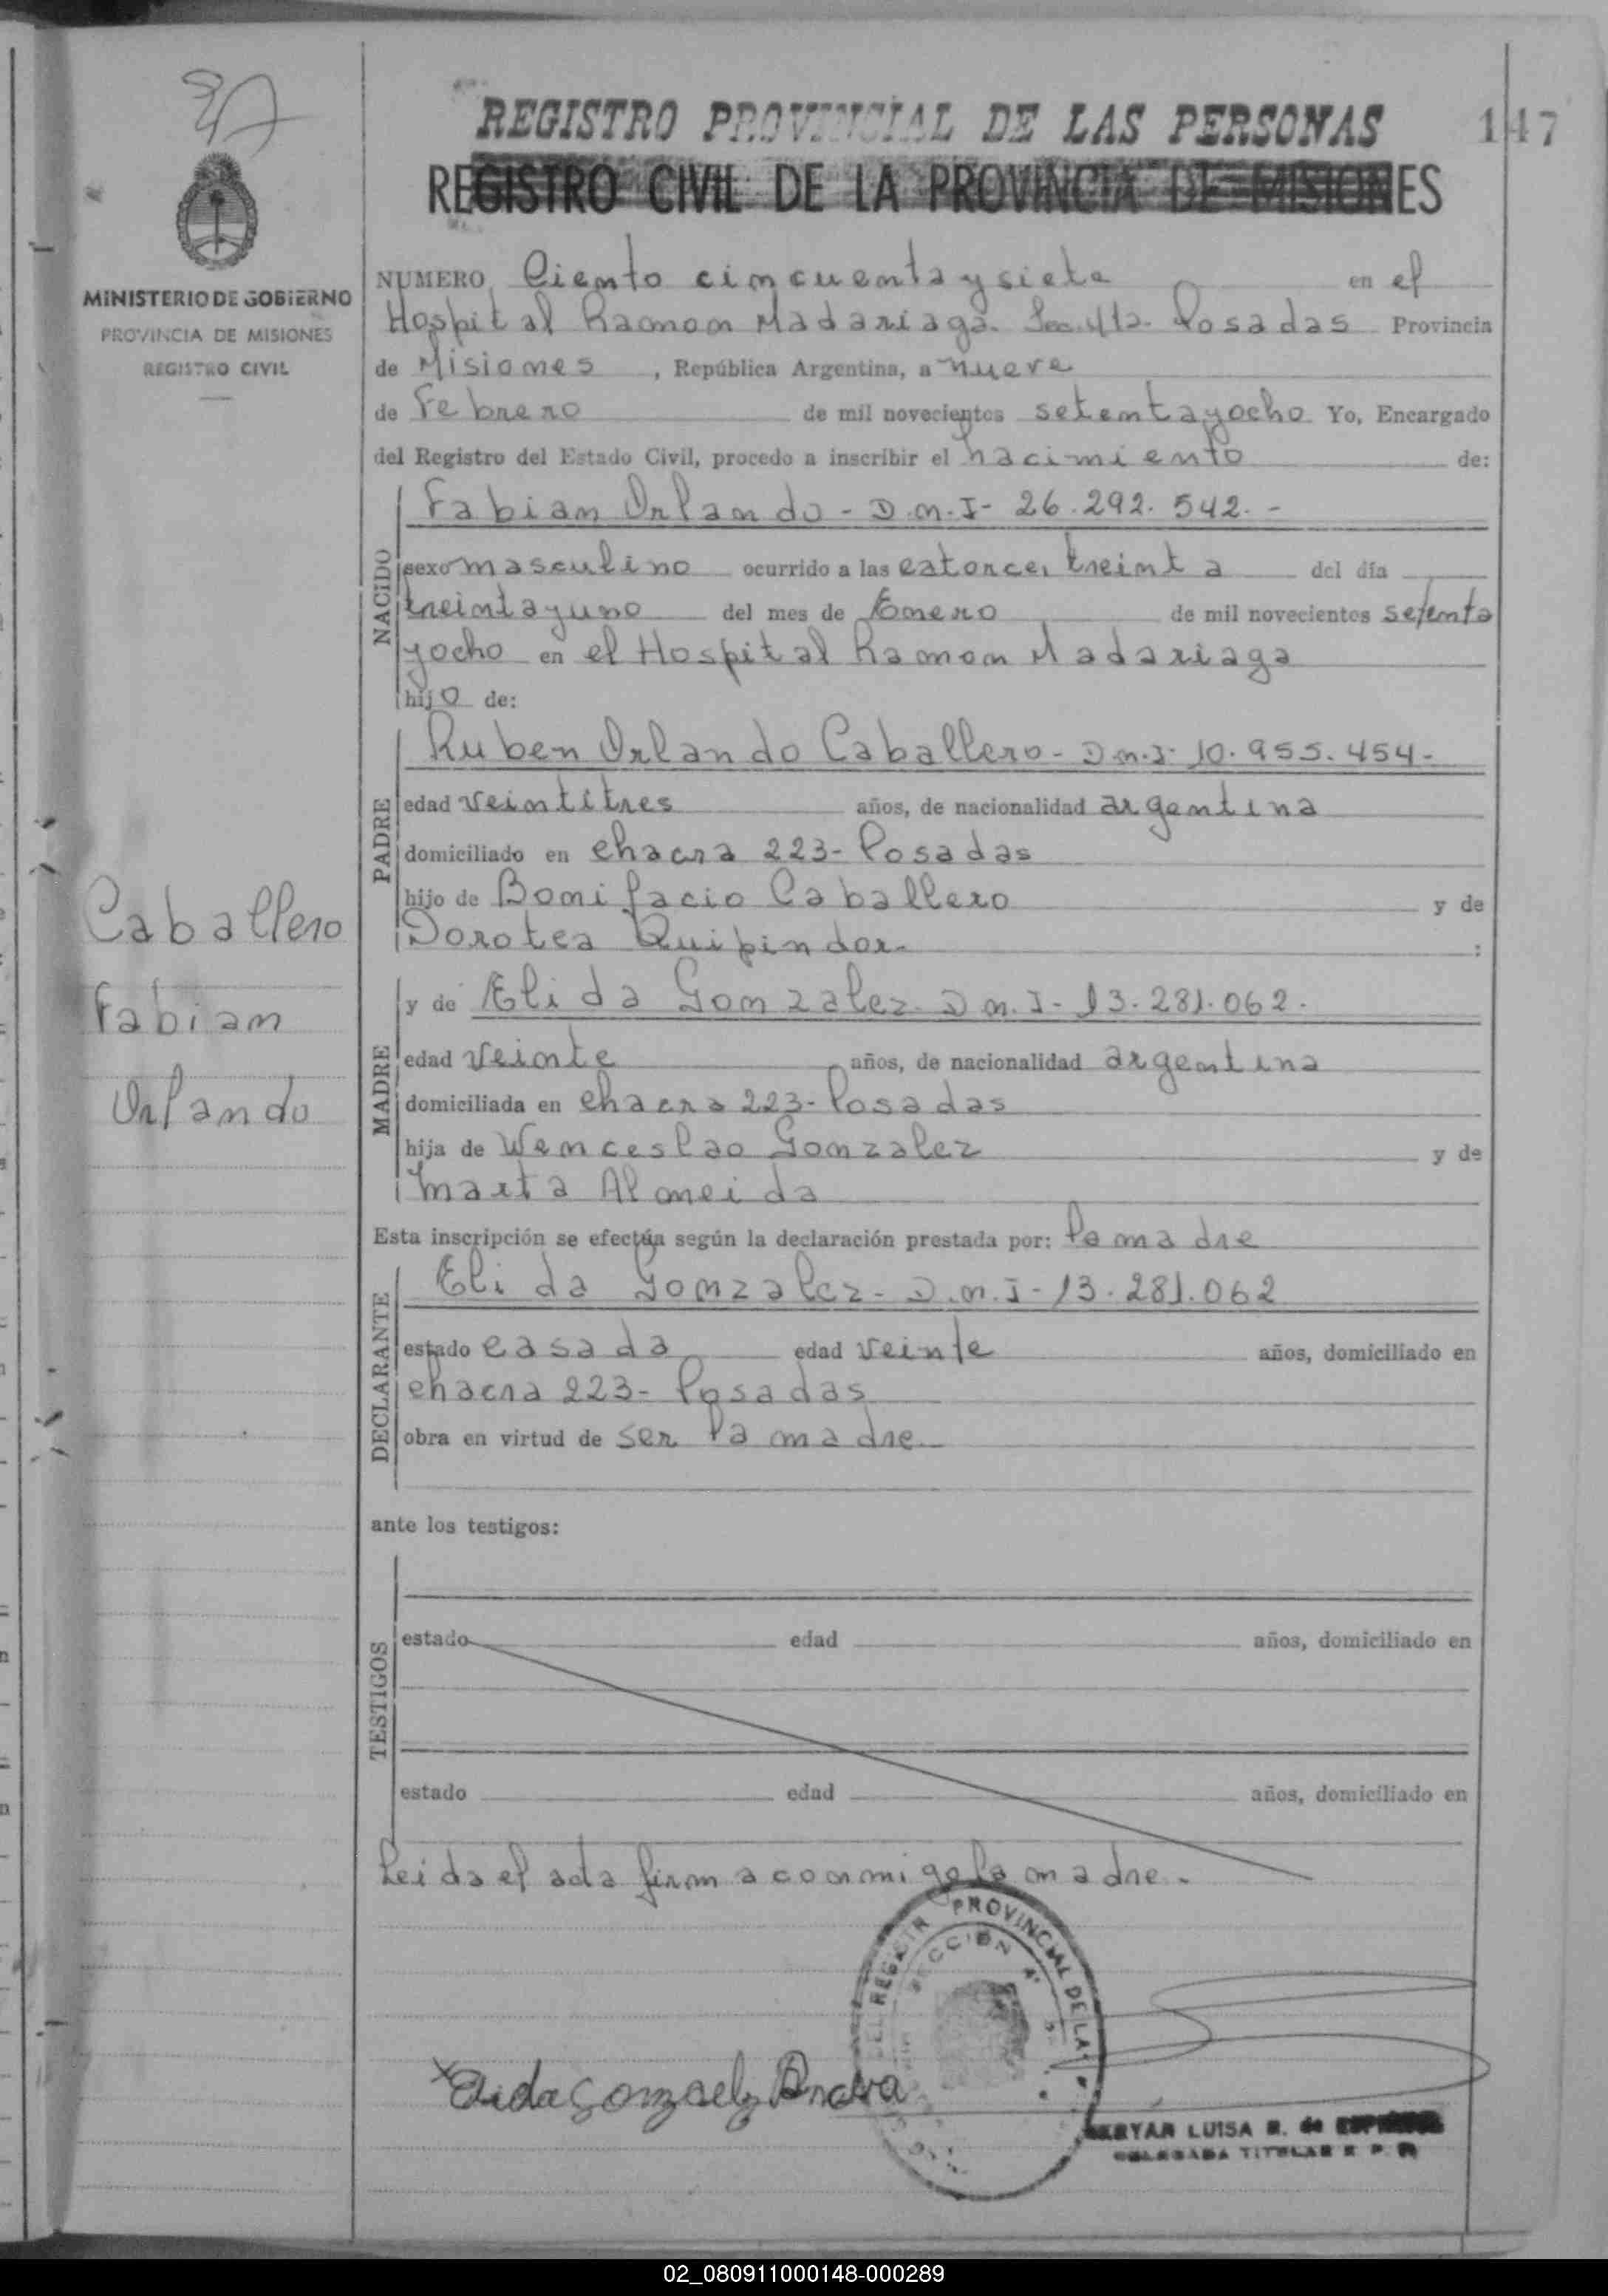 REGISTRO PROVINCIAL DE LAS PERSONAS
147
REGISTRO CIVIL DE LA PROVINCIA DE MISIONES
MINISTERIO DE GOBIERNO
PROVINCIA DE MISIONES
REGISTRO CIVIL
Caballero
Fabian
Orlando
NUMERO Ciento cincuenta y siete en el
Hospital Ramon Madariaga. Sec. 4ta. Posadas Provincia
de Misiones, República Argentina, a nueve
de Febrero de mil novecientos setenta y ocho Yo, Encargado
del Registro del Estado Civil, procedo a inscribir el nacimiento de:
NACIDO
Fabian Orlando - D.N.I - 26.292.542.-
sexo masculino ocurrido a las catorce, treinta del día
treinta y uno del mes de Enero de mil novecientos setenta
y ocho en el Hospital Ramon Madariaga
hijo de:
PADRE
Ruben Orlando Caballero - D.N.I - 10.955.454 -
edad veintitres años, de nacionalidad argentina
domiciliado en chacra 223 - Posadas
hijo de Bonifacio Caballero y de
Dorotea :
MADRE
y de Elida Gonzalez - D.N.I - 13.281.062.
edad veinte años, de nacionalidad argentina
domiciliada en chacra 223 - Posadas
hija de Wenceslao Gonzalez y de
Marta Almeida
Esta inscripción se efectúa según la declaración prestada por: la madre
DECLARANTE
Elida Gonzalez - D.N.I - 13.281.062
estado casada edad veinte años, domiciliado en
chacra 223 - Posadas
obra en virtud de ser la madre
ante los testigos:
TESTIGOS
estado edad años, domiciliado en
estado edad años, domiciliado en
Leida el acta firma conmigo la madre.
PROVINCIAL DE LA
SECCION 4
LUISA R. de
TITULAR R. P.
02_080911000148-000289